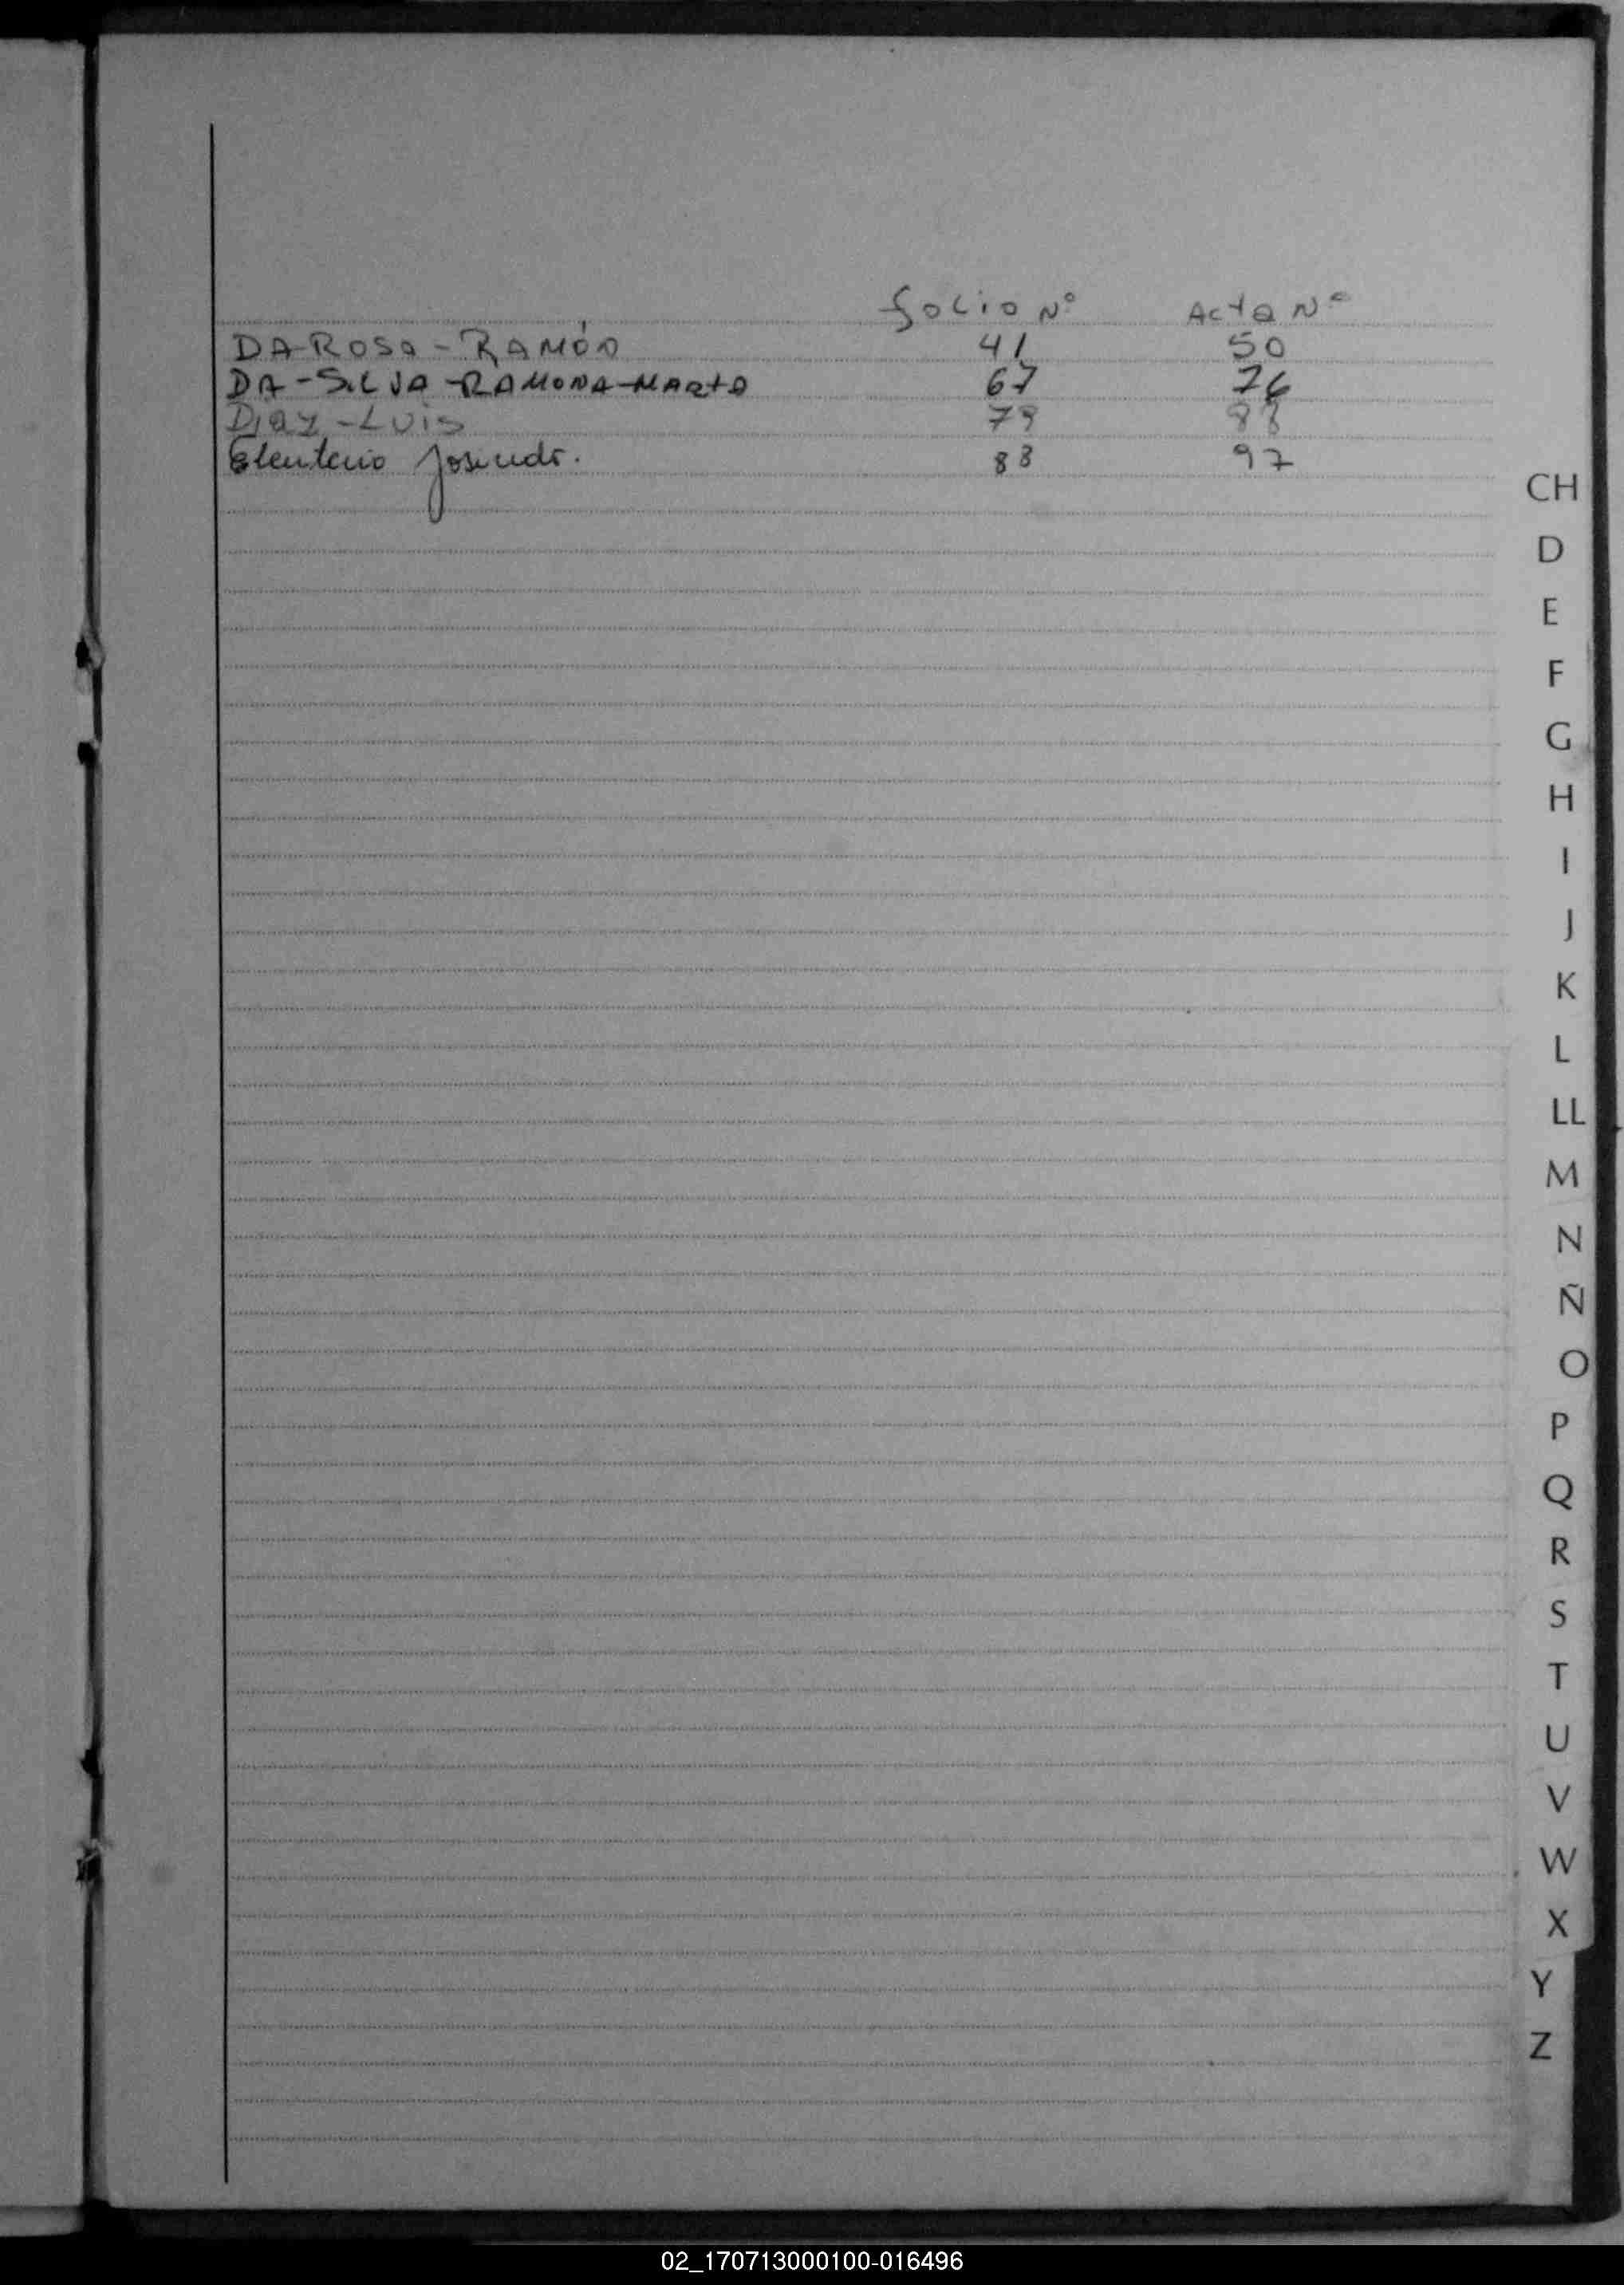 Folio Nº Acta Nº
DA-ROSA-RAMÓN 41 50
DA-SILVA-RAMONA-MARTA 67 76
DIAZ-LUIS 79 88
Eleuterio 88 97
CH
D
E
F
G
H
I
J
K
L
LL
M
N
Ñ
O
P
Q
R
S
T
U
V
W
X
Y
Z
02_170713000100-016496